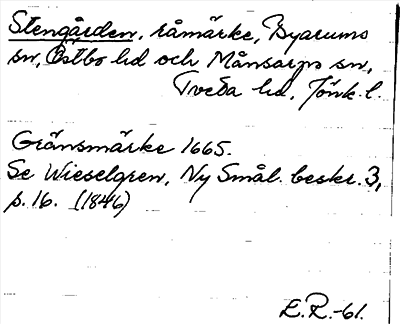 Stengården, råmärke, Byarums
sn, Östbo hd och Månsarps sn,
Tveta hd, Jönk. l.
Gränsmärke 1665.
Se Wieselgren, Ny Smål. beskr. 3,
p. 16. (1846)
E.R.-61.